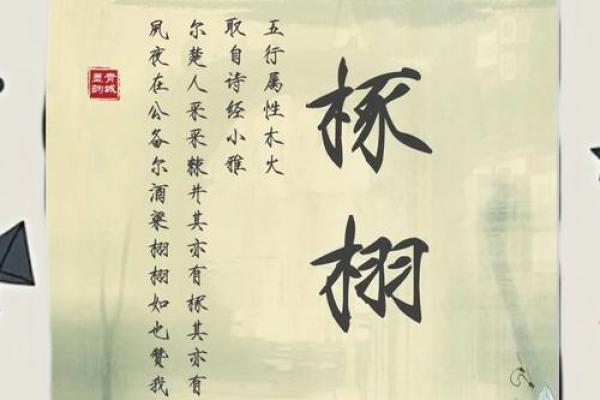 椓栩
五行属性木火
取自诗经小雅
尔楚人采采棘井其亦有椓其亦有
夙夜在公备尔酒粱栩栩如也赞我
青城墨韵